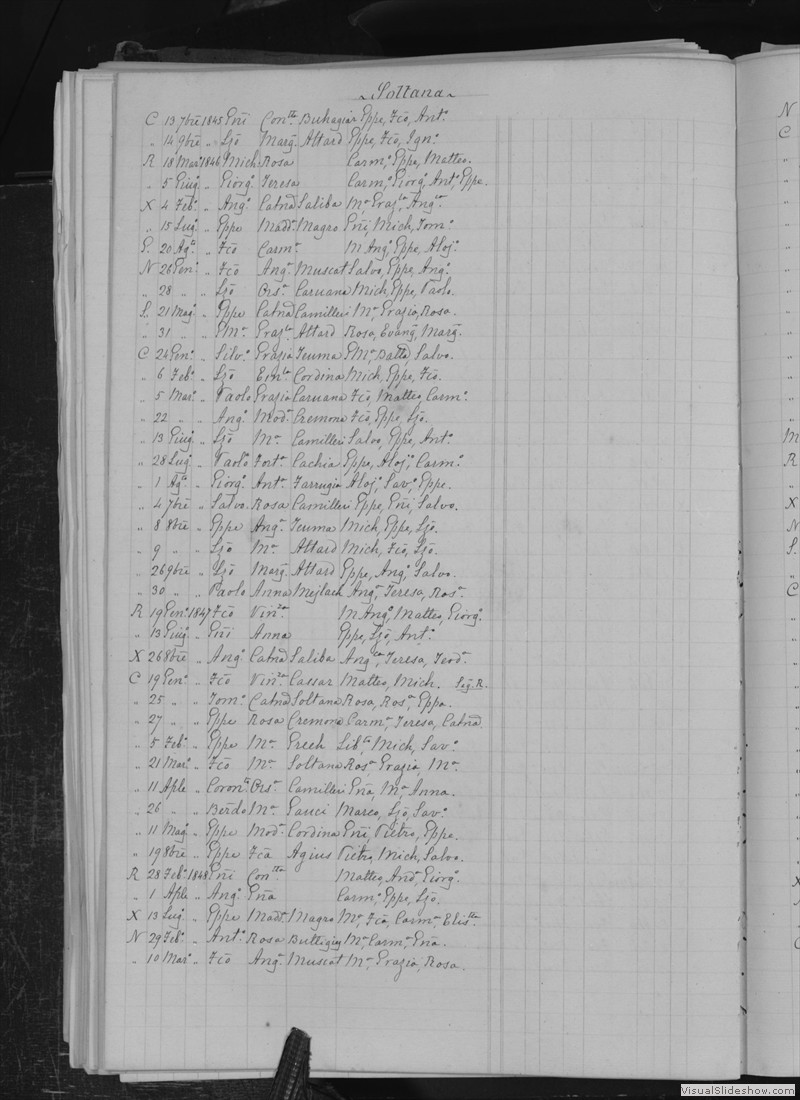 Soltana
C 13 7bre 1845 Gni Con.tta Buhagiar Gppe, Fco, Ant.o
" 14 9bre " Ljo Marg. Attard Gppe, Fco, Ign.o
R 18 Mar.o 1846 Mich. Rosa Carm.o, Gppe, Matteo.
" 5 Giug.o " Giorg.o Teresa Carm.o, Giorg.o, Ant.o, Gppe.
X 4 Feb.o " Ang.o Catna Saliba M.a Graz.la, Ang.a
" 15 Lug.o " Gppe Mad.a Magro Gni, Mich, Tom.o
G. 20 Ag.to " Fco Carm.a M Ang.o, Gppe, Aloj.o
N 26 Gen.o " Fco Ang.a Muscat Salvo, Gppe, Ang.o
" 28 " " Ljo Ors.a Caruana Mich, Gppe, Paolo.
S. 21 Mag.o " Gppe Catna Camilleri M.a Grazia, Rosa.
" 31 " " Gm.o Graz.la Attard Rosa, Evang, Marg.
C 24 Gen.o " Silv.o Grazia Teuma Gm.o, Batta Salvo.
" 6 Feb.o " Ljo Cordina Mich, Gppe, Fco.
" 5 Mar.o " Paolo Grazia Caruana Fco, Matteo, Carm.o
" 22 " " Ang.o Mod.a Cremona Fco, Gppe, Ljo.
" 13 Giug " Ljo M.a Camilleri Salvo, Gppe, Ant.o
" 28 Lug " Paolo Fort.a Cachia Gppe, Aloj.o, Carm.o
" 1 Ag.to " Giorg.o Ant.a Farrugia Aloj.o, Sav.o, Gppe.
" 4 7bre " Salvo Rosa Camilleri Gppe, Gni, Salvo.
" 8 8bre " Gppe Ang.a Teuma Mich, Gppe, Ljo.
" 9 " " Ljo M.a Attard Mich, Fco, Ljo.
" 26 9bre " Ljo Marg. Attard Gppe, Ang.o, Salvo.
" 30 " " Paolo Anna Mejlach Ang.a, Teresa, Ros.a
R 19 Gen.o 1847 Fco Vin.za M Ang.o, Matteo, Giorg.o
" 13 Giug " Gni Anna Gppe, Ljo, Ant.o
X 26 8bre " Ang.o Catna Saliba Ang.ca, Teresa, Teod.a
C 19 Gen.o " Fco Vin.za Cassar Matteo, Mich. Seg. R.
" 25 " " Tom.o Catna Soltana Rosa, Ros.a, Gppa.
" 27 " " Gppe Rosa Cremona Carm.a, Teresa, Catna
" 5 Feb.o " Gppe M.a Grech Lib.ta, Mich, Sav.o
" 21 Mar.o " Fco M.a Soltana Ros.a Grazia, M.a
" 11 Aple " Coron.to Ors.a Camilleri Gna, M.a, Anna.
" 26 " " Berdo M.a Gauci Marco, Ljo, Sav.o
" 11 Mag " Gppe Mod.a Cordina Gni, Pietro, Gppe.
" 19 8bre " Gppe Fca Agius Pietro, Mich, Salvo.
R 28 Feb.o 1848 Gni Con.tta Matteo, And.a, Giorg.o
" 1 Aple " Ang.o Gna Carm.o, Gppe, Ljo.
X 13 Lug " Gppe Mad.a Magro M.a, Fca, Carm.a Elis.tta
N 29 Feb.o " Ant.o Rosa Buttigieg M.a, Carm.a, Gna.
" 10 Mar.o " Fco Ang.a Muscat M.a, Grazia, Rosa.
N
C
M
R
X
N
S.
C
X
VisualSlideshow.com